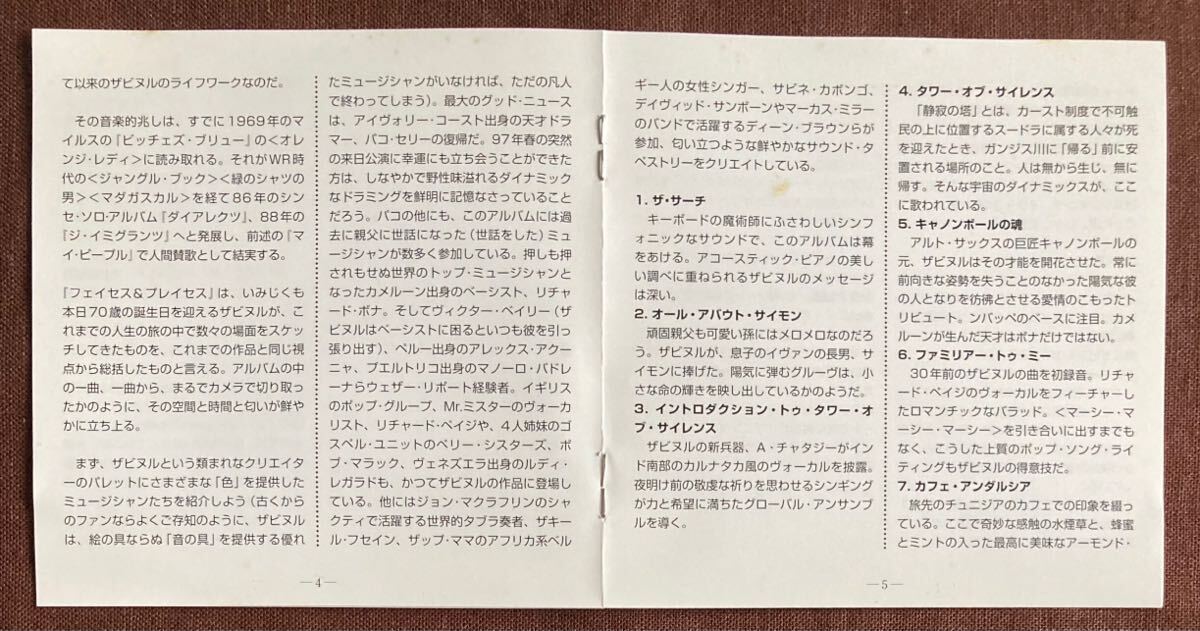 て以来のザビヌルのライフワークなのだ。
その音楽的兆しは、すでに1969年のマ
イルスの『ビッチェズ・ブリュー』の<オレ
ンジ・レディ>に読み取れる。それがWR時
代の<ジャングル・ブック><緑のシャツの
男><マダガスカル>を経て86年のシン
セ・ソロ・アルバム『ダイアレクツ』、88年の
『ジ・イミグランツ』へと発展し、前述の『マ
イ・ピープル』で人間賛歌として結実する。
『フェイセス&プレイセス』は、いみじくも
本日70歳の誕生日を迎えるザビヌルが、
これまでの人生の旅の中で数々の場面をスケッ
チしてきたものを、これまでの作品と同じ視
点から総括したものと言える。アルバムの中
の一曲、一曲から、まるでカメラで切り取っ
たかのように、その空間と時間と匂いが鮮や
かに立ち上る。
まず、ザビヌルという類まれなクリエイタ
ーのパレットにさまざまな「色」を提供した
ミュージシャンたちを紹介しよう(古くから
のファンならよくご存知のように、ザビヌル
は、絵の具ならぬ「音の具」を提供する優れ
たミュージシャンがいなければ、ただの凡人
で終わってしまう)。最大のグッド・ニュース
は、アイヴォリー・コースト出身の天才ドラ
マー、パコ・セリーの復帰だ。97年春の突然
の来日公演に幸運にも立ち会うことができた
方は、しなやかで野性味溢れるダイナミック
なドラミングを鮮明に記憶なさっていること
だろう。パコの他にも、このアルバムには過
去に親父に世話になった(世話をした)ミュ
ージシャンが数多く参加している。押しも押
されもせぬ世界のトップ・ミュージシャンと
なったカメルーン出身のベーシスト、リチャ
ード・ボナ。そしてヴィクター・ベイリー(ザ
ビヌルはベーシストに困るといつも彼を引っ
張り出す)、ペルー出身のアレックス・アクー
ニャ、プエルトリコ出身のマノーロ・バドレ
ーナらウェザー・リポート経験者。イギリス
のポップ・グループ、Mr.ミスターのヴォーカ
リスト、リチャード・ペイジや、4人姉妹のゴ
スペル・ユニットのペリー・シスターズ、ボ
ブ・マラック、ヴェネズエラ出身のルディ・
レガラドも、かつてザビヌルの作品に登場し
ている。他にはジョン・マクラフリンのシャ
クティで活躍する世界的タブラ奏者、ザキー
ル・フセイン、ザップ・ママのアフリカ系ベル
—4—
ギー人の女性シンガー、サビネ・カボンゴ、
デイヴィッド・サンボーンやマーカス・ミラー
のバンドで活躍するディーン・ブラウンらが
参加、匂い立つような鮮やかなサウンド・タ
ペストリーをクリエイトしている。
1. ザ・サーチ
キーボードの魔術師にふさわしいシンフ
ォニックなサウンドで、このアルバムは幕
をあける。アコースティック・ピアノの美し
い調べに重ねられるザビヌルのメッセージ
は深い。
2. オール・アバウト・サイモン
頑固親父も可愛い孫にはメロメロなのだろ
う。ザビヌルが、息子のイヴァンの長男、サ
イモンに捧げた。陽気に弾むグルーヴは、小
さな命の輝きを映し出しているかのようだ。
3. イントロダクション・トゥ・タワー・オ
ブ・サイレンス
ザビヌルの新兵器、A・チャタジーがイン
ド南部のカルナタカ風のヴォーカルを披露。
夜明け前の敬虔な祈りを思わせるシンギング
が力と希望に満ちたグローバル・アンサンブ
ルを導く。
4. タワー・オブ・サイレンス
「静寂の塔」とは、カースト制度で不可触
民の上に位置するスードラに属する人々が死
を迎えたとき、ガンジス川に「帰る」前に安
置される場所のこと。人は無から生じ、無に
帰す。そんな宇宙のダイナミックスが、ここ
に歌われている。
5. キャノンボールの魂
アルト・サックスの巨匠キャノンボールの
元、ザビヌルはその才能を開花させた。常に
前向きな姿勢を失うことのなかった陽気な彼
の人となりを彷彿とさせる愛情のこもったト
リビュート。ンバッペのベースに注目。カメ
ルーンが生んだ天才はボナだけではない。
6. ファミリアー・トゥ・ミー
30年前のザビヌルの曲を初録音。リチャ
ード・ペイジのヴォーカルをフィーチャーし
たロマンチックなバラッド。<マーシー・マ
ーシー・マーシー>を引き合いに出すまでも
なく、こうした上質のポップ・ソング・ライ
ティングもザビヌルの得意技だ。
7. カフェ・アンダルシア
旅先のチュニジアのカフェでの印象を綴っ
ている。ここで奇妙な感触の水煙草と、蜂蜜
とミントの入った最高に美味なアーモンド・
—5—